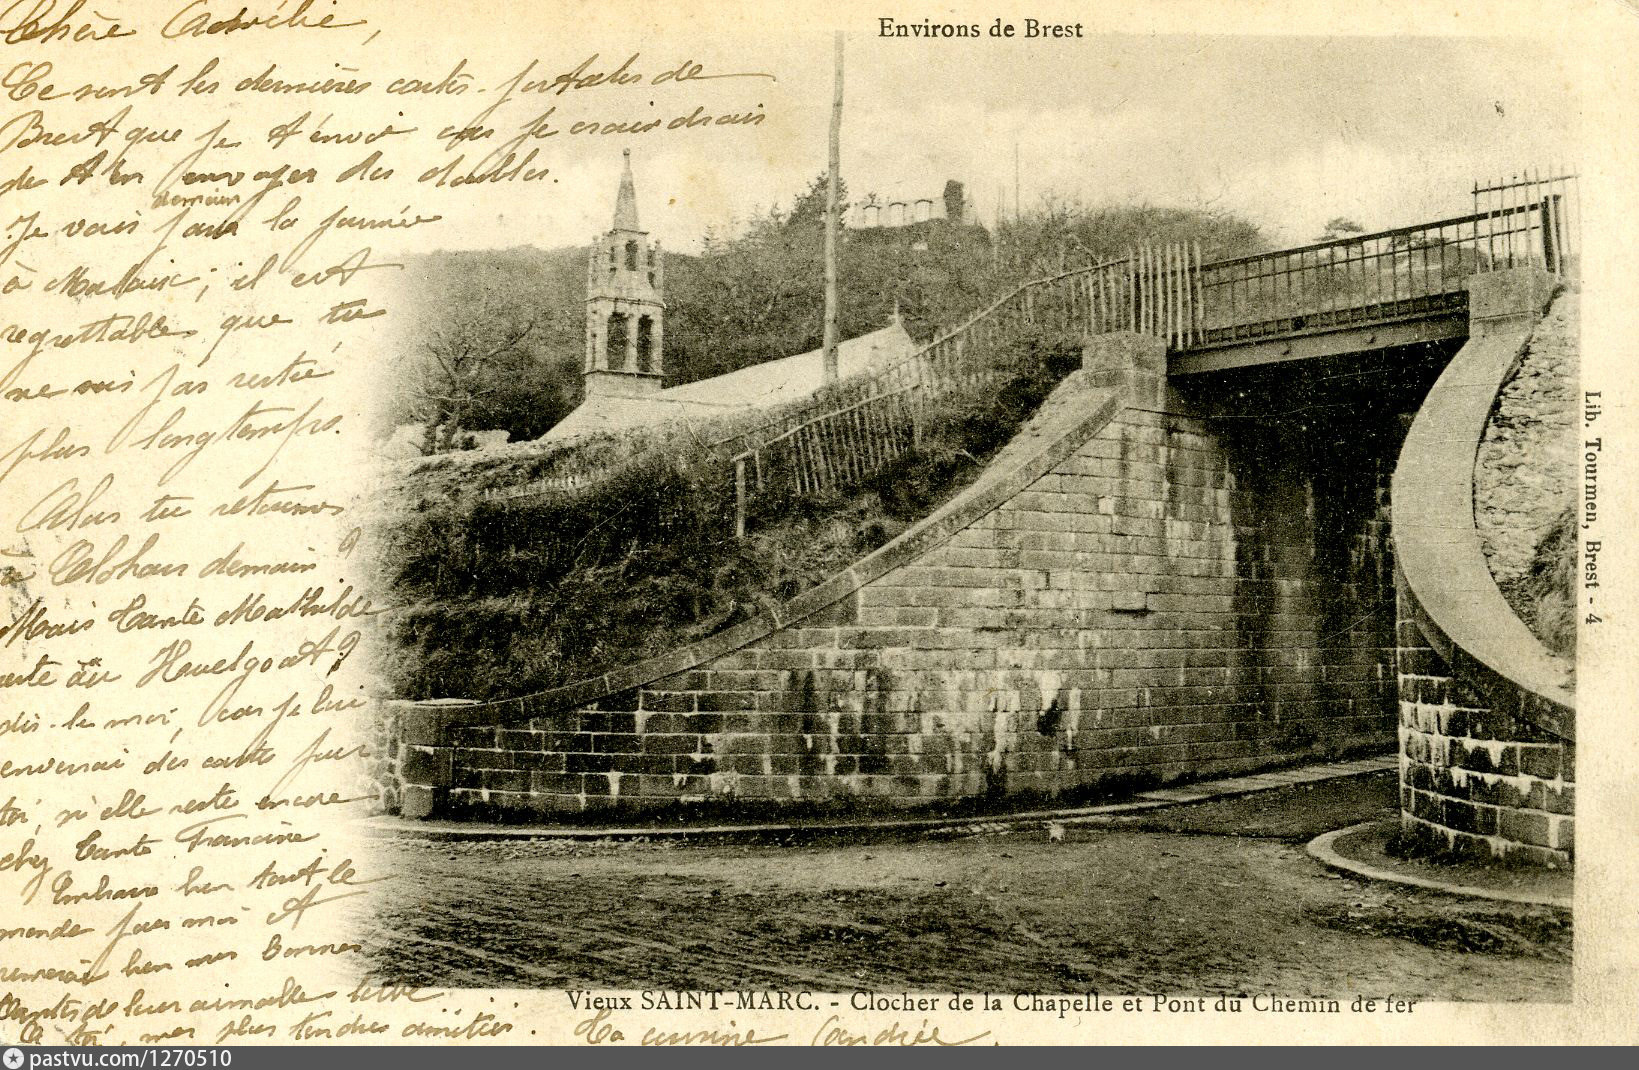 Environs de Brest
Chère Aurélie,
Ce sont les dernières cartes-postales de
Brest que je t'envoi car je craindrais
de t'en envoyer des doubles.
demain
Je vais passer la journée
à Morlaix; il est
regrettable que tu
ne sois pas restée
plus longtemps.
Alors tu retournes
à demain ?
Mais Tante Mathilde
reste au Huelgoat ?
dis-le moi, car je lui
enverrai des cartes pour
toi, si elle reste encore
chez Tante Francine
Embrasse bien tout le
monde pour moi et
remercie bien mes Bonnes
Tantes de leur aimable lettre
A toi, mes plus tendres amitiés. Ta cousine Andrée.
Vieux SAINT-MARC. - Clocher de la Chapelle et Pont du Chemin de fer
Lib. Tourmen, Brest - 4
pastvu.com/1270510